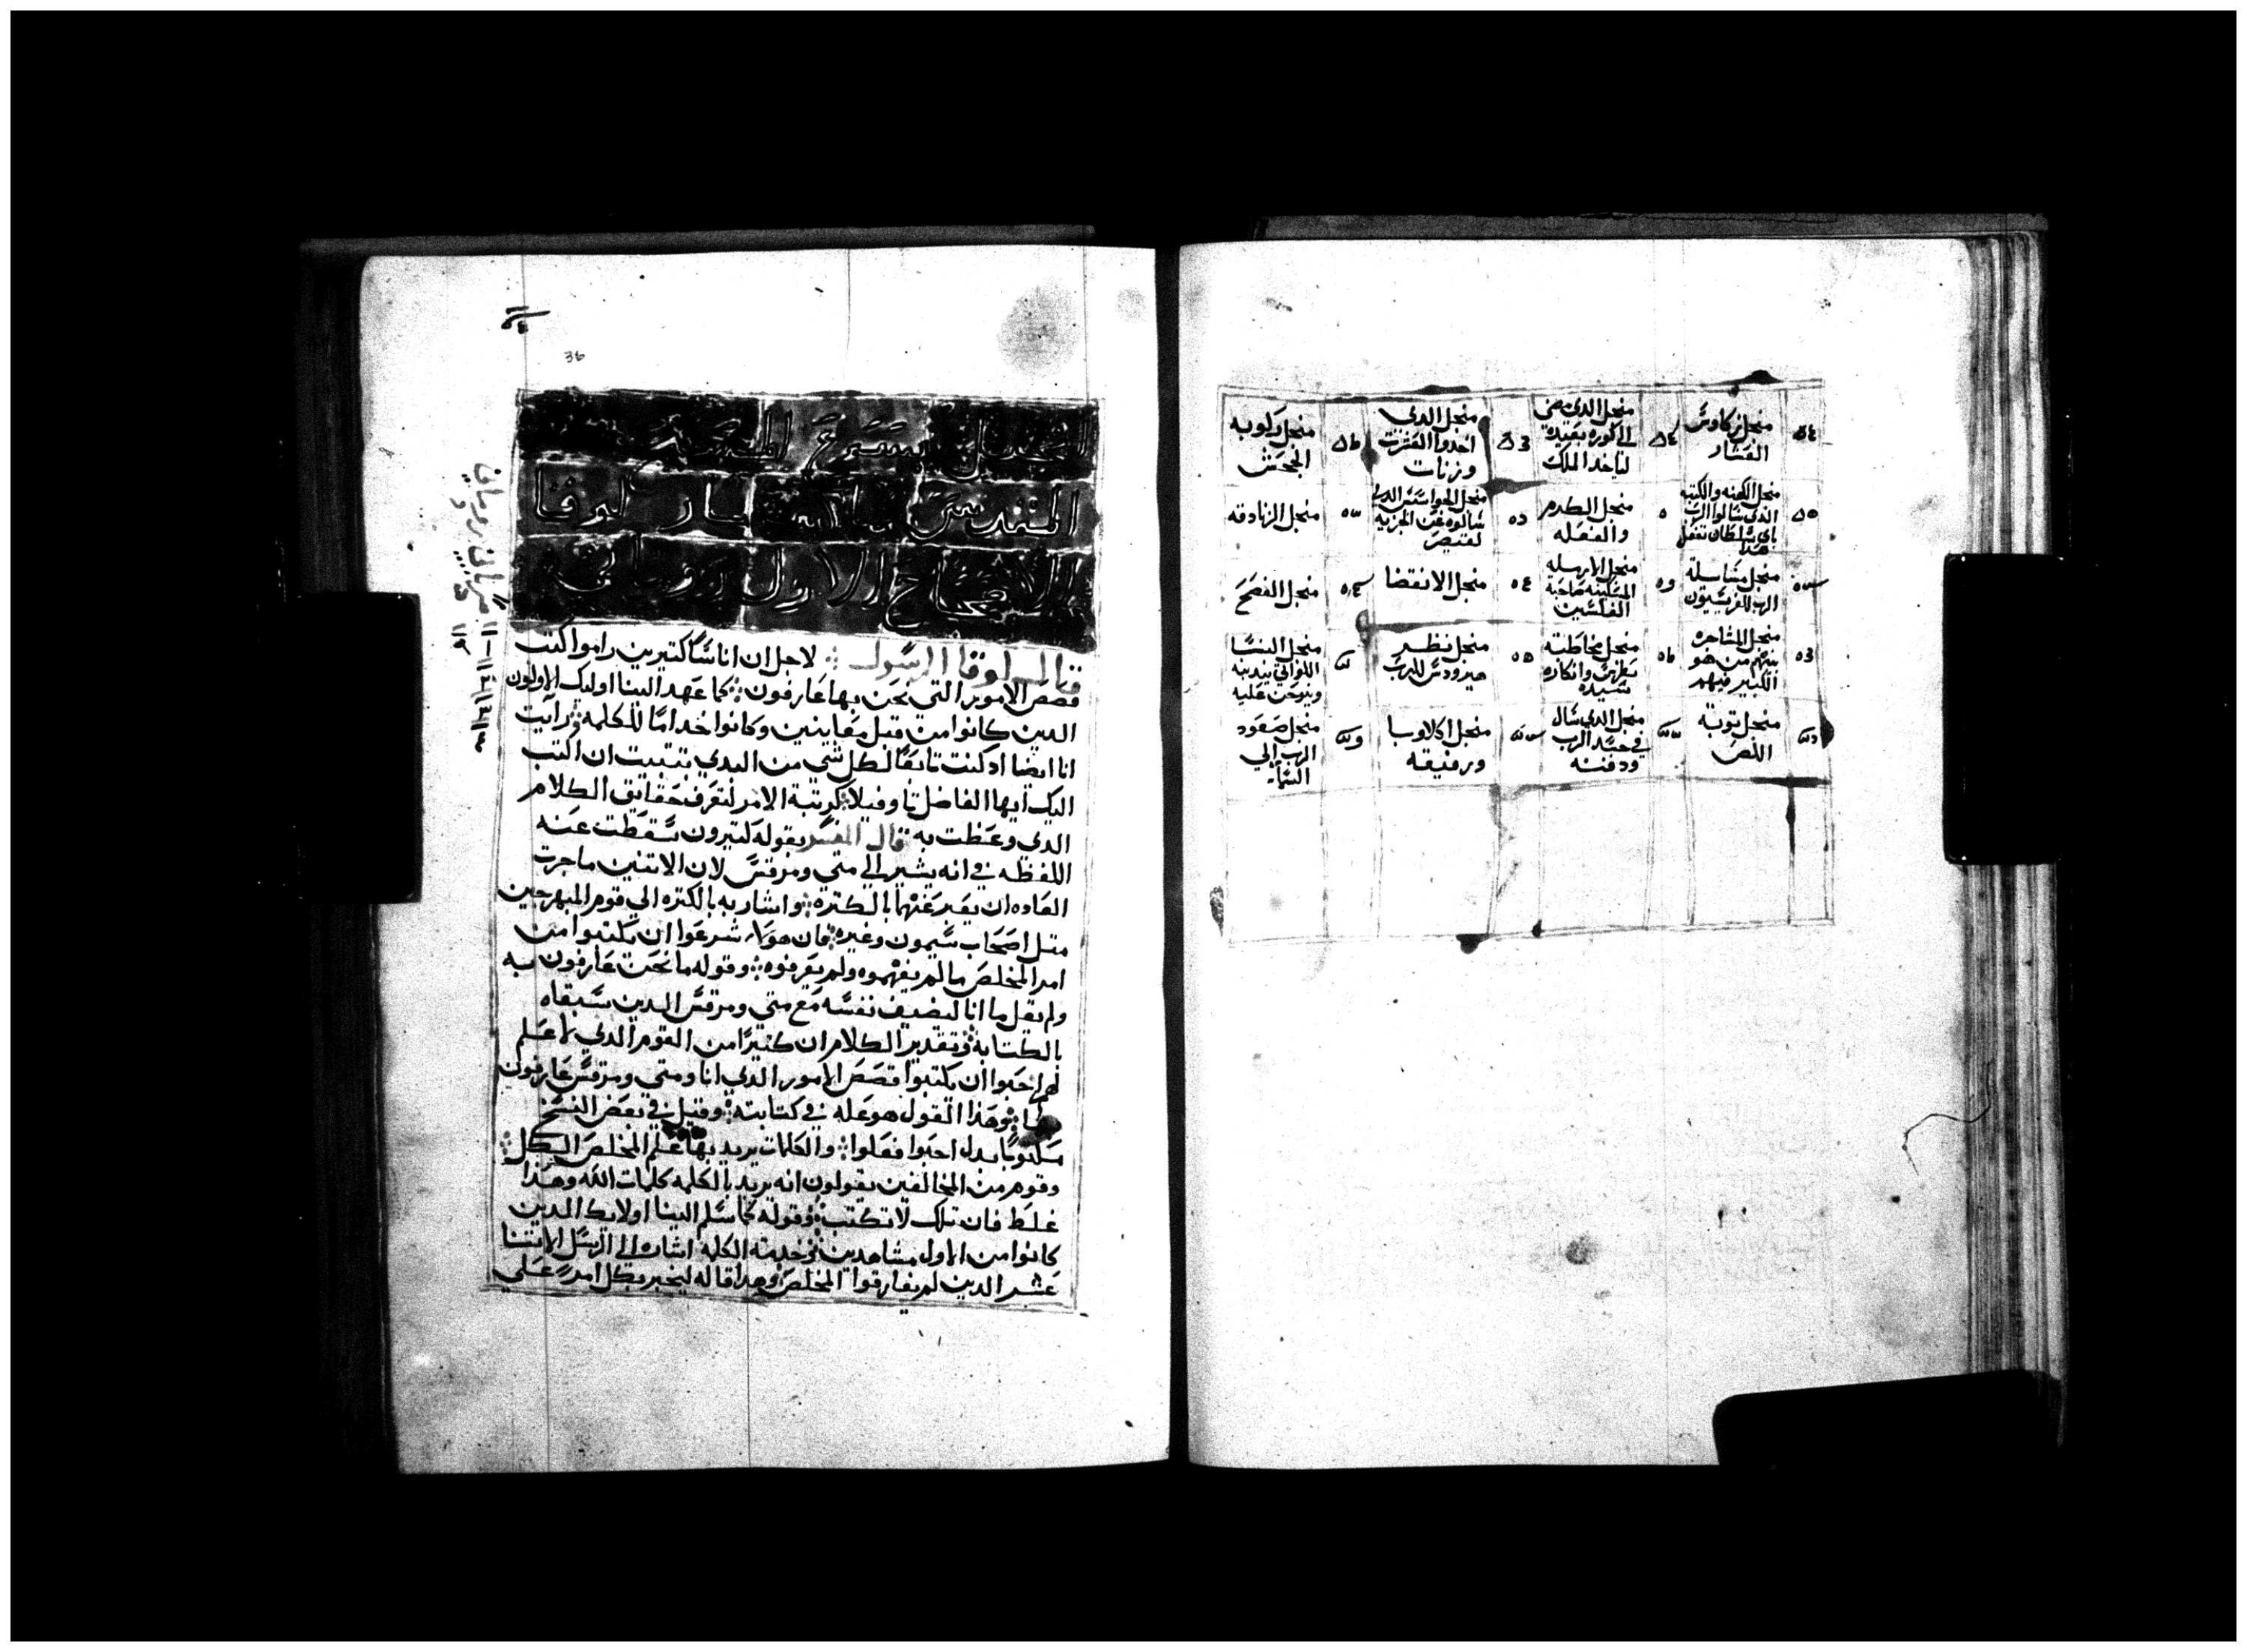 منجل زكاوس
العشار
منجل الدي مضي
الي كوره بعيده
لياخد الملك
منجل الدي
اخدوا العشرت
وزنات
منجل ركوبه
الجحش
منجل الكهنه والكتبه
الدي سالوا الرب
باي سلطان تفعل
هدا
منجل الكرم
والفعله
منجل الجواسيس الدي
سالوه عن الجزيه
لقيصر
منجل الزنادقه
منجل مسايلة
الرب للفريسيون
منجل الارمله
المسكينه صاحبة
الفلسين
منجل الانقضا
منجل الفصح
منجل المشاجره
بينهم من هو
الكبير فيهم
منجل مخاطبته
بطرس وانكاره
سيده
منجل نظر
هيرودس للرب
منجل النسا
اللواتي يندبنه
وينوحن عليه
منجل توبة
اللص
منجل الدي سال
في جسد الرب
ودفنه
منجل اكلاوبا
ورفيقه
منجل صعود
الرب الي
السماء
36
انجيل يسوع المسيح
المقدس بشارة مار لوقا
الاصحاح الاول
قال لوقا الرسول لاجل ان اناسًا كتيرين راموا كتب
قصص الامور التي نحن بها عارفون كما عهد الينا اوليك الاولون
الدين كانوا من قبل معاينين وكانوا خدامًا للكلمه رايت
انا ايضا اد كنت تابعًا لكل شي من البدي بتتبيت ان اكتب
اليك ايها الفاضل تاوفيلا كرتبة الامر لتعرف حقايق الكلام
الدي وعظت به قال المفسر بقوله كتيرون سقطت عنه
اللفظه في انه يشير الي متي ومرقس لان الاتنين ما جرت
العاده ان يعبر عنهما بالكتره واشار به بالكتره الي قوم المبهرجين
متل اصحاب سيمون وغيره فان هولاء شرعوا ان يكتبوا من
امر المخلص ما لم يفهموه ولم يعرفوه وقوله ما نحن عارفون به
ولم يقل ما انا ليضيف نفسه مع متي ومرقس الدين سبقاه
بالكتابة وتقدير الكلام ان كتيرًا من القوم الدي لا علم
لهم احبوا ان يكتبوا قصص الامور الدي انا ومتي ومرقس عارفون
بها وهدا القول هو عله في كتابته وقيل في بعض النسخ
مكتوبًا بدل احبوا فعلوا والكلمات يريد بها علم المخلص الكل
وقوم من المخالفين يقولون انه يريد بالكلمه كلمات الله وهدا
غلط فان تلك لا تكتب وقوله كما سلم الينا اولايك الدين
كانوا من الاول مشاهدين وخدمة الكلمه اشاره الي الرسل الاتنا
عشر الدين لم يفارقوا المخلص وهدا قاله ليخبر بكل امر علي